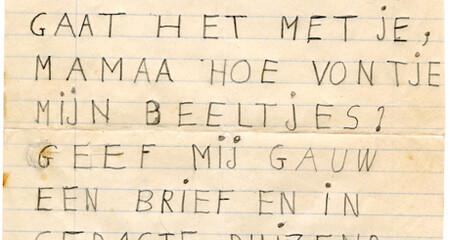 GAAT HET MET JE,
MAMAA HOE VONTJE
MIJN BEELTJES?
GEEF MIJ GAUW
EEN BRIEF EN IN